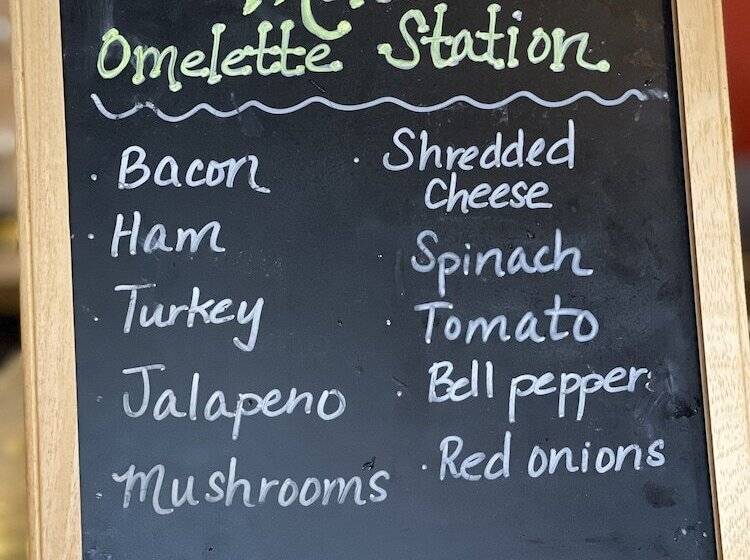 Omelette Station
· Bacon
· Ham
· Turkey
· Jalapeno
· Mushrooms
· Shredded
cheese
· Spinach
· Tomato
· Bell pepper
· Red onions